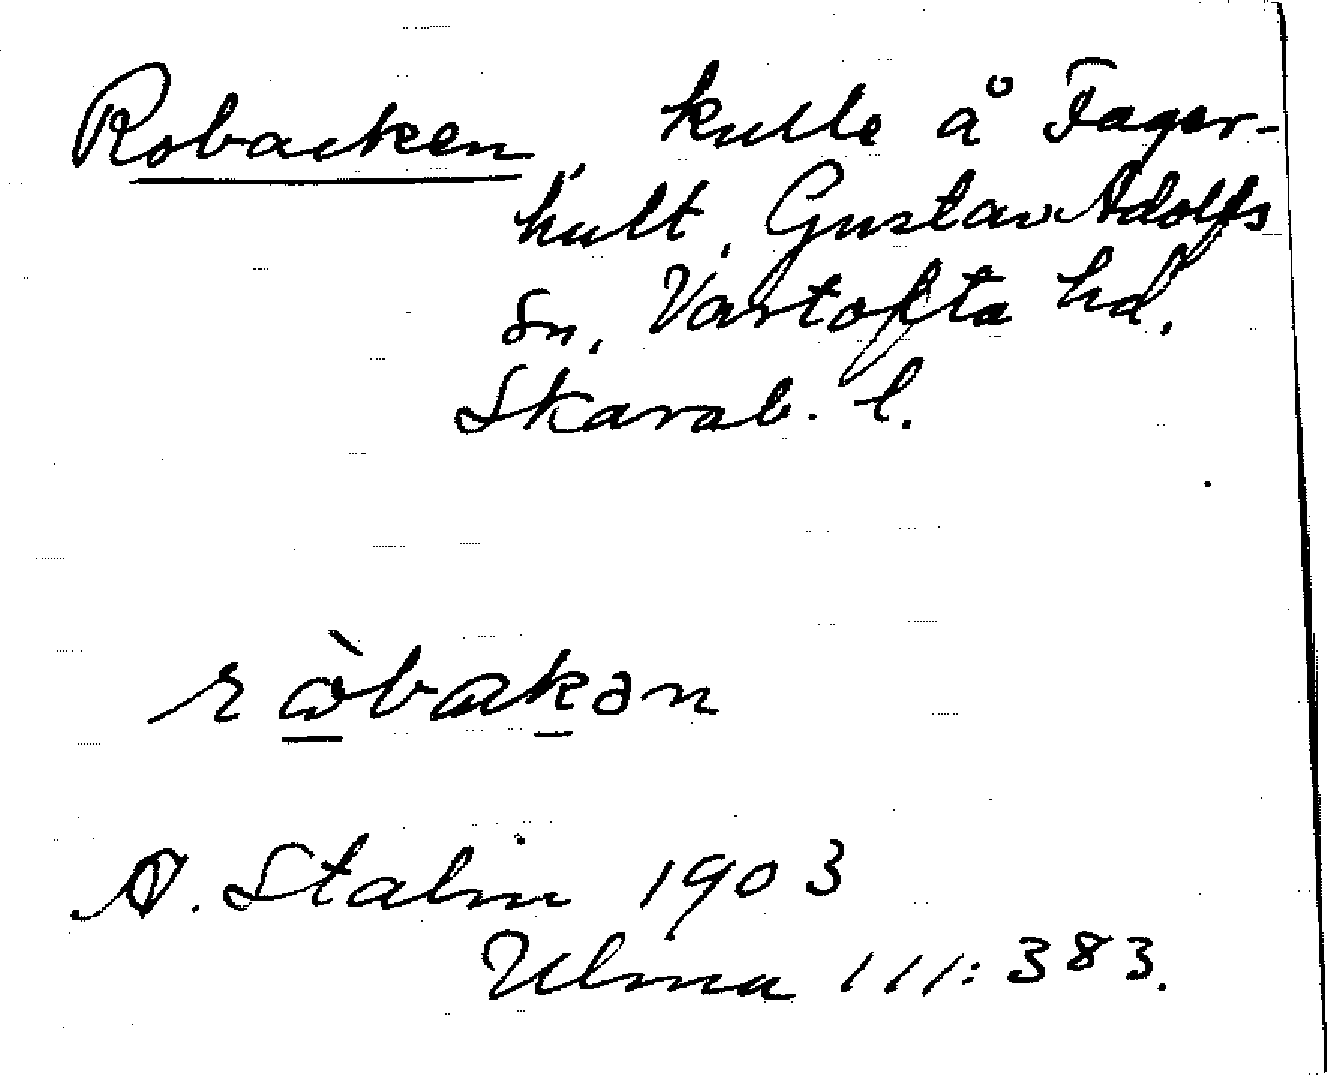 Robacken, kulle å Fager-
hult, Gustav Adolfs
sn, Vartofta hd.
Skarab. l.
rὼbakən
A. Stalin 1903
Ulma 111:383.